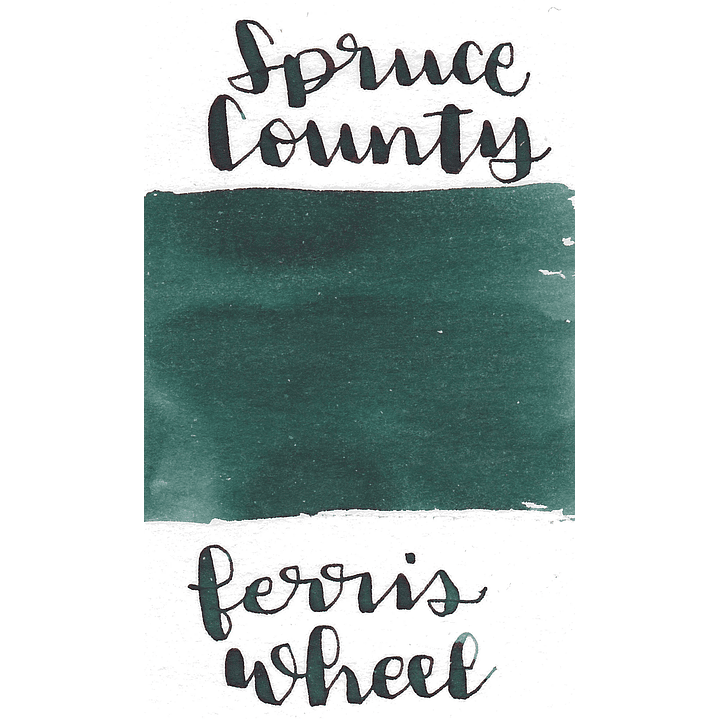 Spruce
County
ferris
wheel